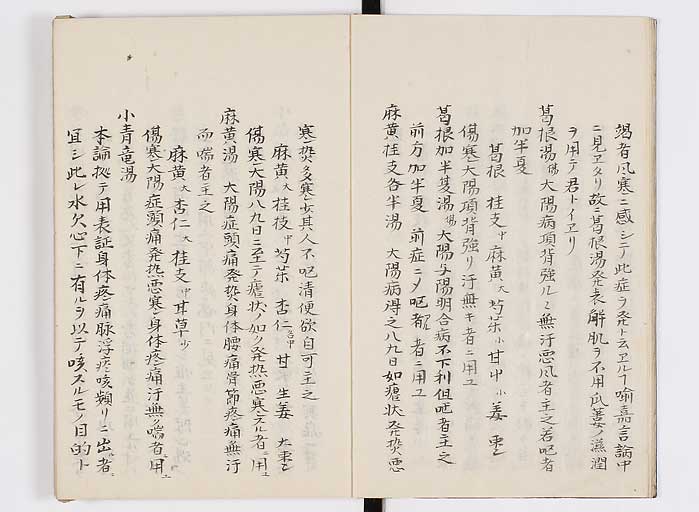 竭者風寒ニ感シニテ此症ヲ発ト云ヱルヿ喻嘉言論中
ニ見ヱタリ故ニ葛根湯発表解肌ヲ不用瓜蔞ノ滋潤
ヲ用テ君トイヱリ
葛根湯 傷 大陽病項背強ルヽ無汗悪風者主之若呕者
加半夏
葛根 桂支中 麻黄大 芍茱小 甘中 小姜 棗
傷寒大陽項背強リ汗無キ者ニ用ユ
葛根加半夏湯 傷 大陽与陽明合病不下利但呕者主之
前方加半夏 前症ニ〆呕者ニ用ユ
麻黄桂支各半湯 大陽病得之八九日如瘧状発熱悪
寒熱多寒少其人不呕清便欲自可主之
麻黄大 桂枝中 芍茱 杏仁 甘 生姜 大棗
傷寒大陽八九日ニ至テ瘧状ノ如ク発熱悪寒スル者ニ用ユ
麻黄湯 大陽症頭痛発熱身体腰痛骨節疼痛無汗
而喘者主之
麻黄大 杏仁大 桂支中 甘草少
傷寒大陽症頭痛発熱悪寒シ身体疼痛汗無ク喘者ニ用ユ
小青竜湯
本論拠テ用表証身体疼痛脉浮疼咳類リニ出ル者ニ
宜シ此レ水欠心下ニ有ルヲ以テ咳スルモノ目的ト